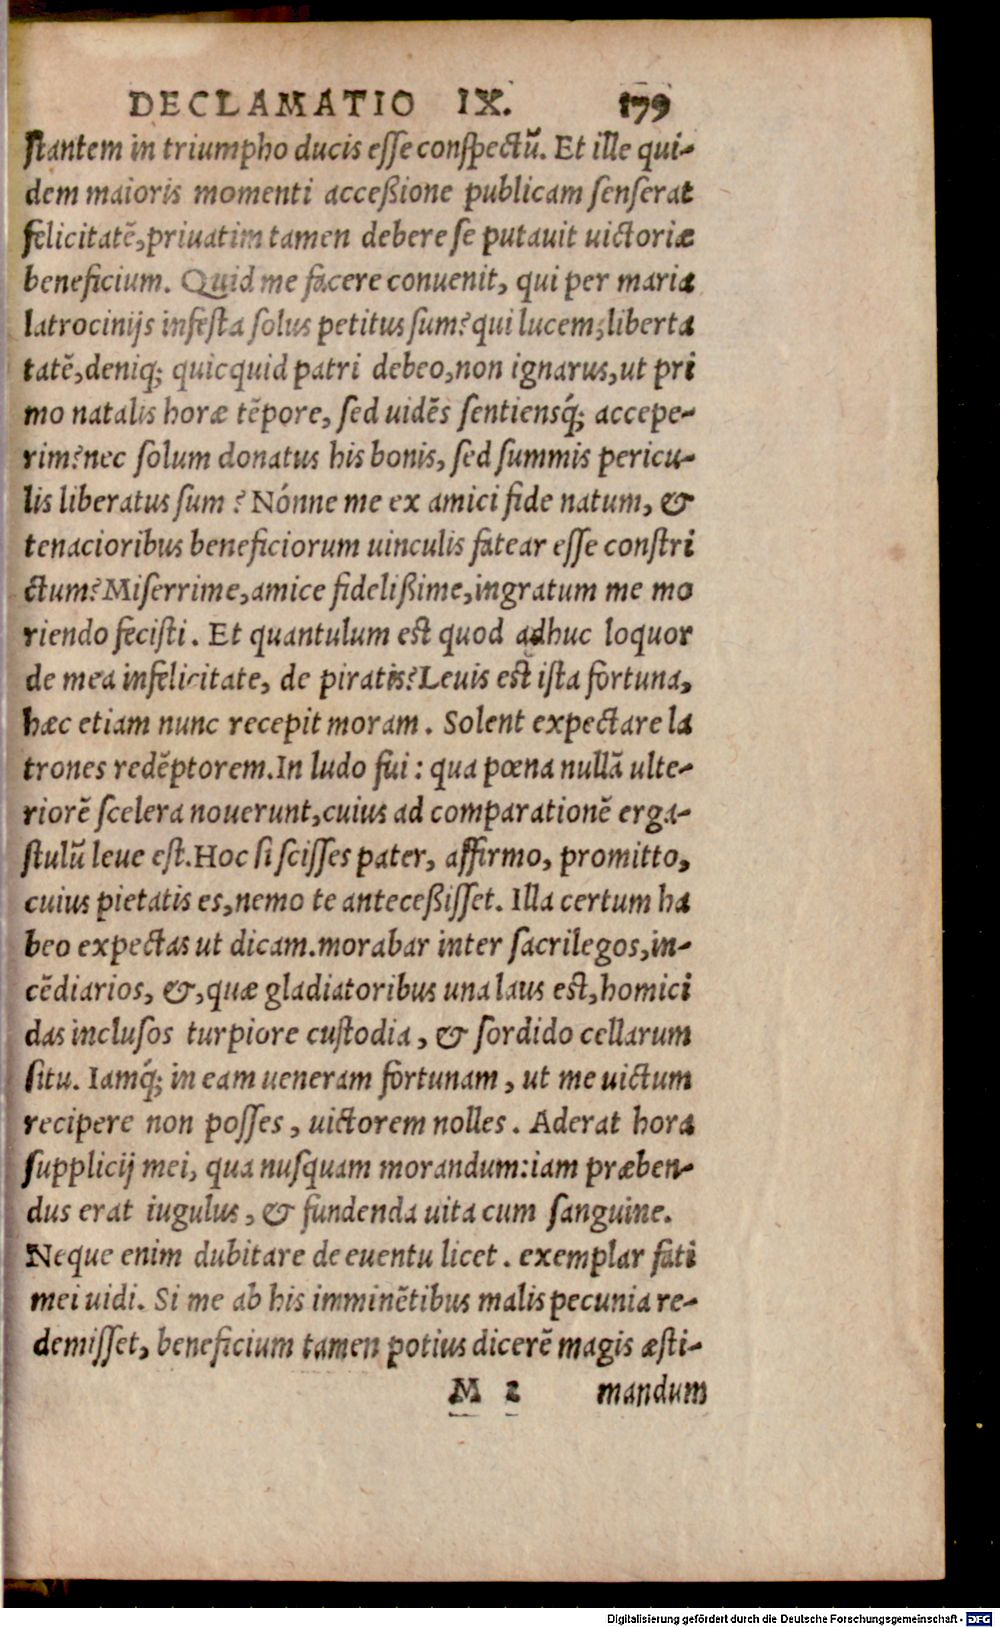 DECLAMATIO IX. 179
stantem in triumpho ducis esse conspectũ. Et ille qui-
dem maioris momenti acceßione publicam senserat
felicitatẽ, priuatim tamen debere se putauit uictoriæ
beneficium. Quid me facere conuenit, qui per maria
latrocinijs infesta solus petitus sum? qui lucem, liberta
tatẽ, deniq; quicquid patri debeo, non ignarus, ut pri
mo natalis horæ tẽpore, sed uidẽs sentiensq́; accepe-
rim? nec solum donatus his bonis, sed summis pericu-
lis liberatus sum? Nónne me ex amici fide natum, &
tenacioribus beneficiorum uinculis fatear esse constri
ctum? Miserrime, amice fidelißime, ingratum me mo
riendo fecisti. Et quantulum est quod adhuc loquor
de mea infelicitate, de piratis? Leuis est ista fortuna,
hæc etiam nunc recepit moram. Solent expectare la
trones redẽptorem. In ludo fui: qua pœna nullã ulte-
riorẽ scelera nouerunt, cuius ad comparationẽ erga-
stulũ leue est. Hoc si scisses pater, affirmo, promitto,
cuius pietatis es, nemo te anteceßisset. Illa certum ha
beo expectas ut dicam. morabar inter sacrilegos, in-
cẽdiarios, &, quæ gladiatoribus una laus est, homici
das inclusos turpiore custodia, & sordido cellarum
situ. Iamq́; in eam ueneram fortunam, ut me uictum
recipere non posses, uictorem nolles. Aderat hora
supplicij mei, qua nusquam morandum: iam præben-
dus erat iugulus, & fundenda uita cum sanguine.
Neque enim dubitare de euentu licet. exemplar fati
mei uidi. Si me ab his imminẽtibus malis pecunia re-
demisset, beneficium tamen potius dicerẽ magis æsti-
M 2 mandum
Digitalisierung gefördert durch die Deutsche Forschungsgemeinschaft - DFG